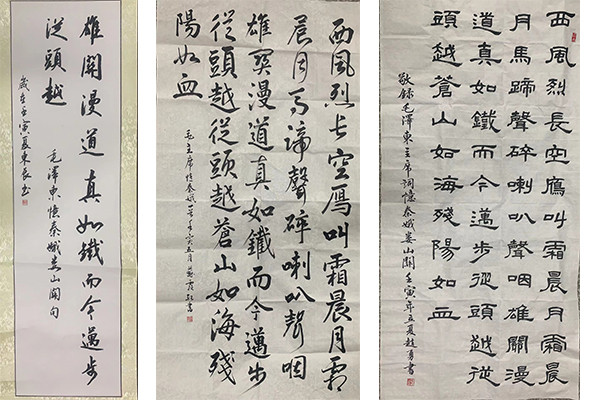 雄關漫道真如鐵而今邁步
從頭越
毛澤東憶秦娥婁山關句
歲在壬寅夏東長書
西風烈長空雁叫霜晨月霜
晨月馬蹄聲碎喇叭聲咽
雄關漫道真如鐵而今邁步
從頭越從頭越蒼山如海殘
陽如血
毛主席憶秦娥一首壬寅五月
西風烈長空鷹叫霜晨月霜晨
月馬蹄聲碎喇叭聲咽雄關漫
道真如鐵而今邁步從頭越從
頭越蒼山如海殘陽如血
敬錄毛澤東主席詞憶秦娥婁山關壬寅年五夏趙勇書